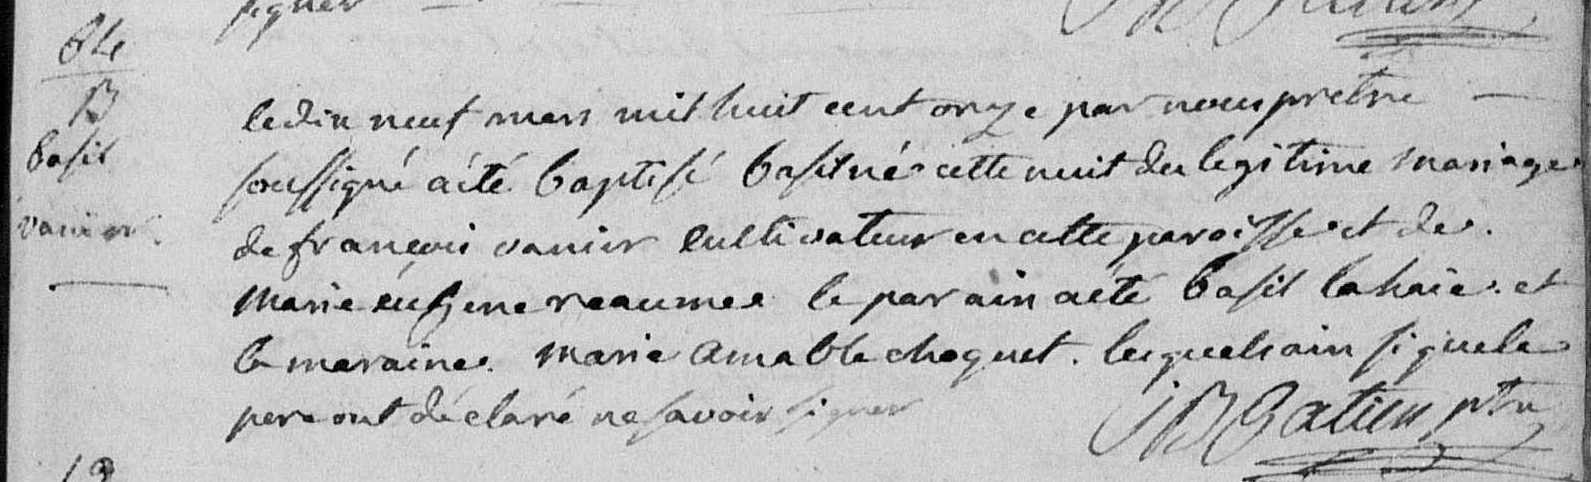 signer
B
Basil
vanier
le dix neuf mars mil huit cent onze par nous prêtre
soussigné a été baptisé basil né cette nuit du legitime mariage
de françois vanier cultivateur en cette paroisse et de
Marie eugene reaume le parain a été basil lahaie et
la maraine Marie amable choquet. lesquels ainsi que le
pere ont déclaré ne savoir signer JB Gatien ptre